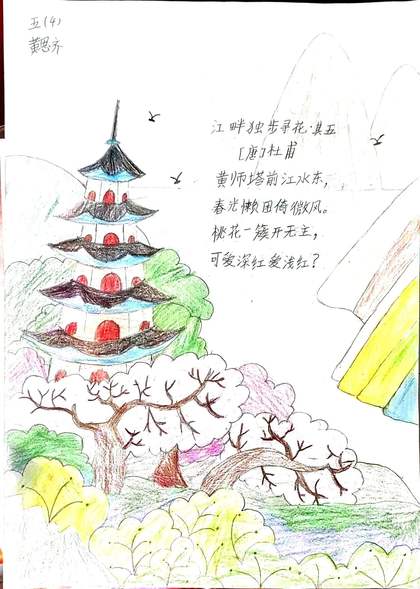 五(4)
黄思齐
江畔独步寻花·其五
[唐]杜甫
黄师塔前江水东，
春光懒困倚微风。
桃花一簇开无主，
可爱深红爱浅红？